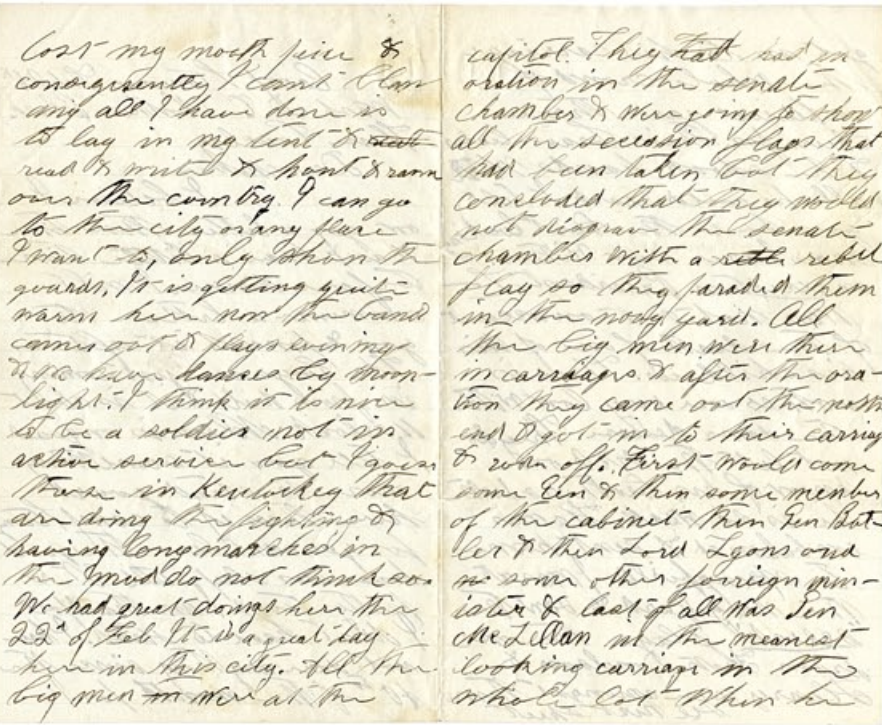 lost my mouth peice &
consequently I cant blow
any all I have done is
to lay in my tent &
read & write & hunt & ramm
over the country. I can go
to the city or any place
I want to, only shun the
guards. It is getting quite
warm here now the band
comes out & plays evening
& we have danses by moon-
light. I think it is nice
to be a soldier not in
active service but I guess
those in Kentuckey that
are doing the fighting &
having long marches in
the mud do not think so.
We had great doings here the
22d of Feb It is a great day
here in this city. All the
big men were at the
capitol. They had had an
oration in the senate
chamber & were going to show
all the secession flags that
had been taken but they
concluded that they would
not disgrace the senate
chamber with a rebel
flag so they paraded them
in the navy yard. All
the big men were there
in carriages & after the ora-
tion they came out the north
end & got in to their carriag
& rode off. First would come
some Gen & then some member
of the cabinet then Gen But-
ler & then Lord Lyons and
some other foreign min-
ister & last of all was Gen
McLellan in the meanest
looking carriage in the
whole lot When he